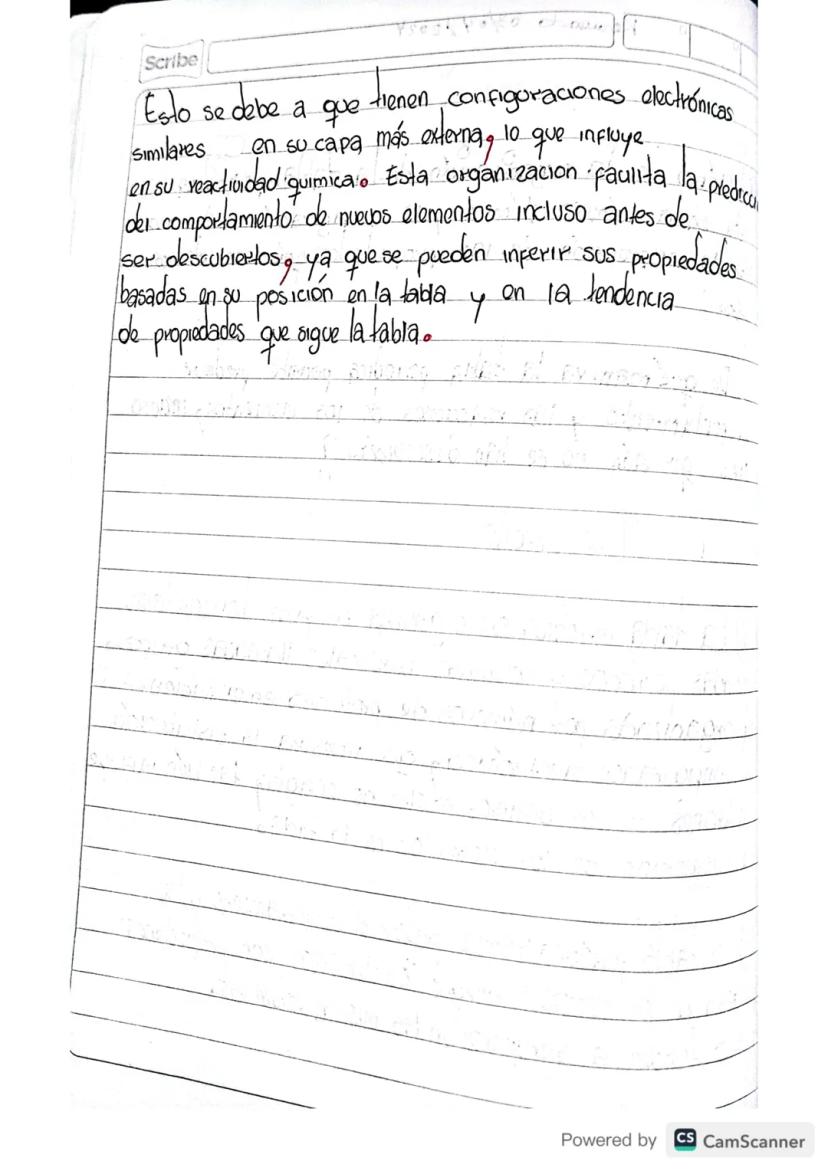 Scribe
Esto se debe a que tienen configuraciones electrónicas
similares en su capa más externa, lo que influye
en su reactividad quimica. Esta organizacion facilita la predicci
del comportamiento de nuevos elementos incluso antes de
ser descubiertos, ya que se pueden inferir sus propiedades
basadas en su posición en la tabla y en la tendencia
de propiedades que sigue la tabla.
Powered by CS CamScanner